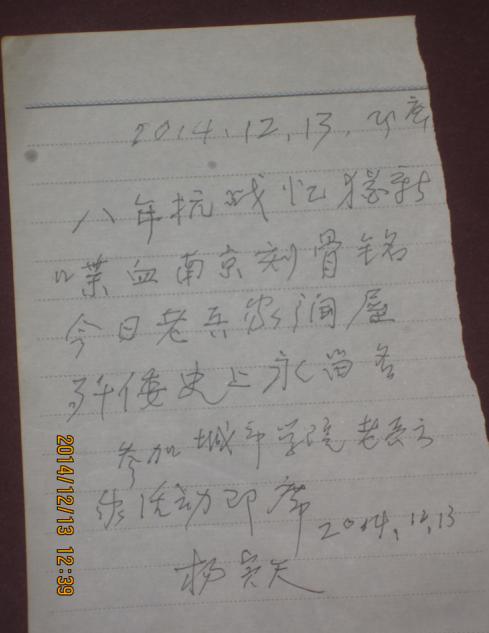 2014.12.13.即席
八年抗战忆犹新
喋血南京刻骨铭
今日老兵
歼倭史上永留名
参加城市学院老兵
活动即席
2014.12.13
杨
2014/12/13 12:39